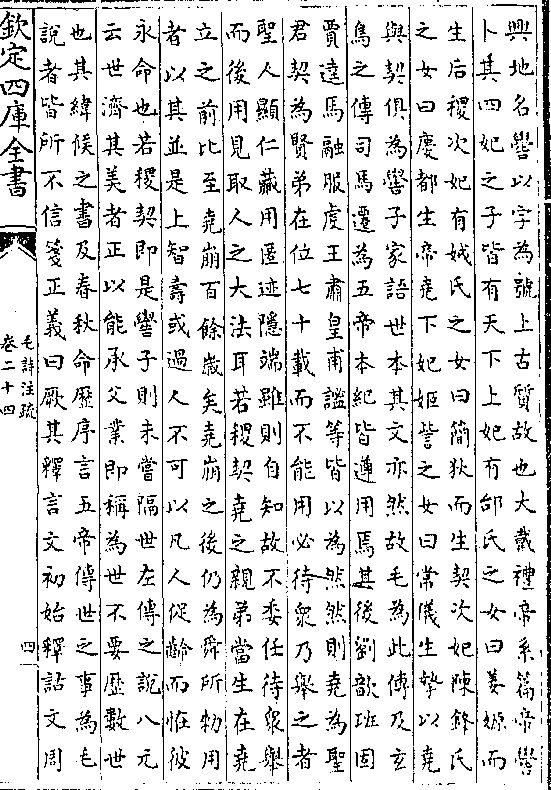 興地名嚳以字為號上古質故也大戴禮帝系篇帝嚳
卜其四妃之子皆有天下上妃有邰氏之女曰姜嫄而
生后稷次妃有娀氏之女曰簡狄而生契次妃陳鋒氏
之女曰慶都生帝堯下妃娵訾之女曰常儀生摯以堯
與契俱為嚳子家語世本其文亦然故毛為此傳及玄
鳥之傳司馬遷為五帝本紀皆遵用焉其後劉歆班固
賈逵馬融服虔王肅皇甫謐等皆以為然然則堯為聖
君契為賢弟在位七十載而不能用必待衆乃舉之者
聖人顯仁藏用匿迹隱端雖則自知故不委任待衆舉
而後用見取人之大法耳若稷契堯之親弟當生在堯
立之前比至堯崩百餘歲矣堯崩之後仍為舜所勑用
者以其並是上智壽或過人不可以凡人促齡而怪彼
永命也若稷契即是嚳子則未嘗隔世左傳之說八元
云世濟其美者正以能承父業即稱為世不要歷數世
也其緯候之書及春秋命歷序言五帝傳世之事為毛
說者皆所不信箋正義曰厥其釋言文初始釋詁文周
欽定四庫全書
毛詩注疏
卷二十四
四